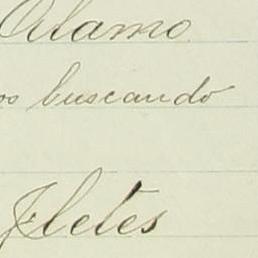 Alamo
os buscando
Fletes